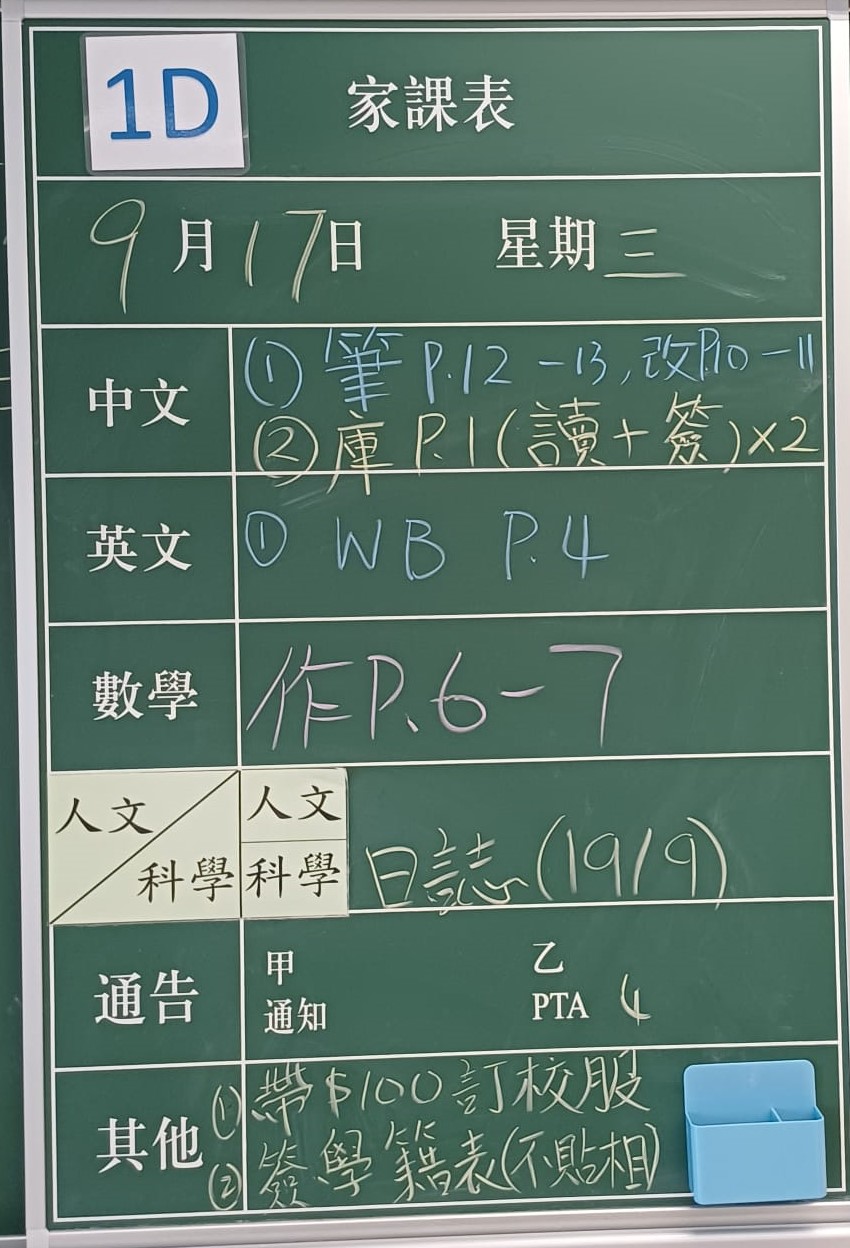 1D 家課表
9月17日 星期三
中文 ① 筆 P.12 -13, 改P.10 -11
② 庫 P.1 (讀 + 簽) ×2
英文 ① WB P.4
數學 作P.6-7
人文/科學 人文
科學 日誌 (19/9)
通告 甲 乙
通知 PTA 4
其他 ① 帶$100訂校服
② 簽學籍表(不貼相)